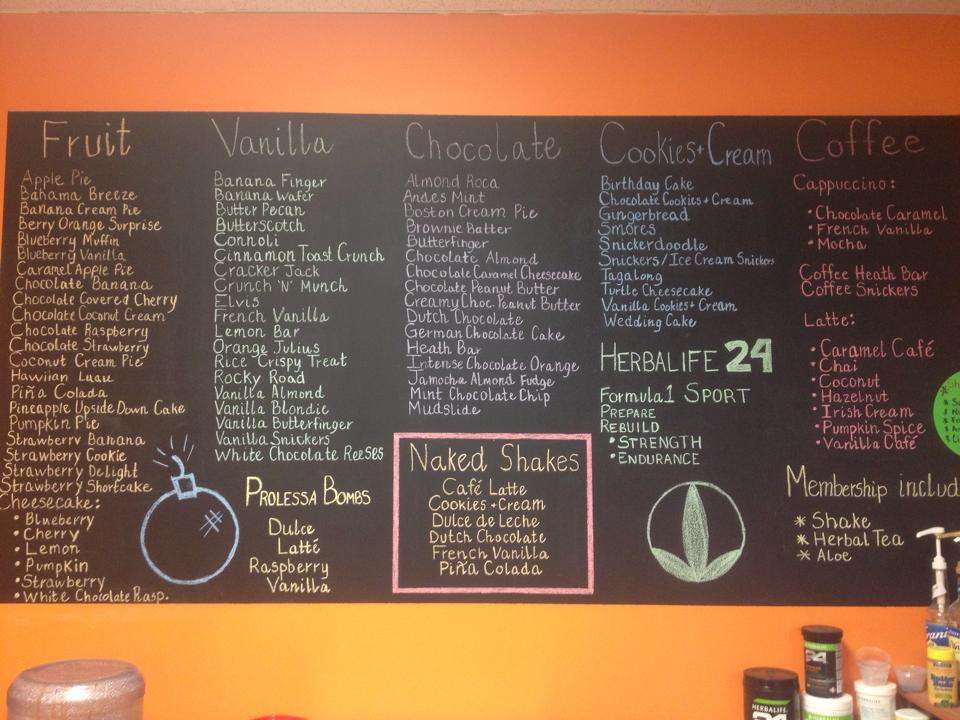 Fruit
Apple Pie
Bahama Breeze
Banana Cream Pie
Berry Orange Surprise
Blueberry Muffin
Blueberry Vanilla
Caramel Apple Pie
Chocolate Banana
Chocolate Covered Cherry
Chocolate Coconut Cream
Chocolate Raspberry
Chocolate Strawberry
Coconut Cream Pie
Hawiian Luau
Piña Colada
Pineapple Upside Down Cake
Pumpkin Pie
Strawberry Banana
Strawberry Cookie
Strawberry Delight
Strawberry Shortcake
Cheesecake:
• Blueberry
• Cherry
• Lemon
• Pumpkin
• Strawberry
• White Chocolate Rasp.
Vanilla
Banana Finger
Banana Wafer
Butter Pecan
Butterscotch
Connoli
Cinnamon Toast Crunch
Cracker Jack
Crunch 'N' Munch
Elvis
French Vanilla
Lemon Bar
Orange Julius
Rice Crispy Treat
Rocky Road
Vanilla Almond
Vanilla Blondie
Vanilla Butterfinger
Vanilla Snickers
White Chocolate Reeses
PROLESSA BOMBS
Dulce
Latté
Raspberry
Vanilla
Chocolate
Almond Roca
Andes Mint
Boston Cream Pie
Brownie Batter
Butterfinger
Chocolate Almond
Chocolate Caramel Cheesecake
Chocolate Peanut Butter
Creamy Choc. Peanut Butter
Dutch Chocolate
German Chocolate Cake
Heath Bar
Intense Chocolate Orange
Jamocha Almond Fudge
Mint Chocolate Chip
Mudslide
Naked Shakes
Café Latte
Cookies + Cream
Dulce de Leche
Dutch Chocolate
French Vanilla
Piña Colada
Cookies + Cream
Birthday Cake
Chocolate Cookies + Cream
Gingerbread
Smores
Snickerdoodle
Snickers/Ice Cream Snickers
Tagalong
Turtle Cheesecake
Vanilla Cookies + Cream
Wedding Cake
HERBALIFE 24
Formula 1 SPORT
PREPARE
REBUILD
• STRENGTH
• ENDURANCE
Coffee
Cappuccino:
• Chocolate Caramel
• French Vanilla
• Mocha
Coffee Heath Bar
Coffee Snickers
Latte:
• Caramel Café
• Chai
• Coconut
• Hazelnut
• Irish Cream
• Pumpkin Spice
• Vanilla Café
Membership includ
* Shake
* Herbal Tea
* Aloe
24
HERBALIFE
24